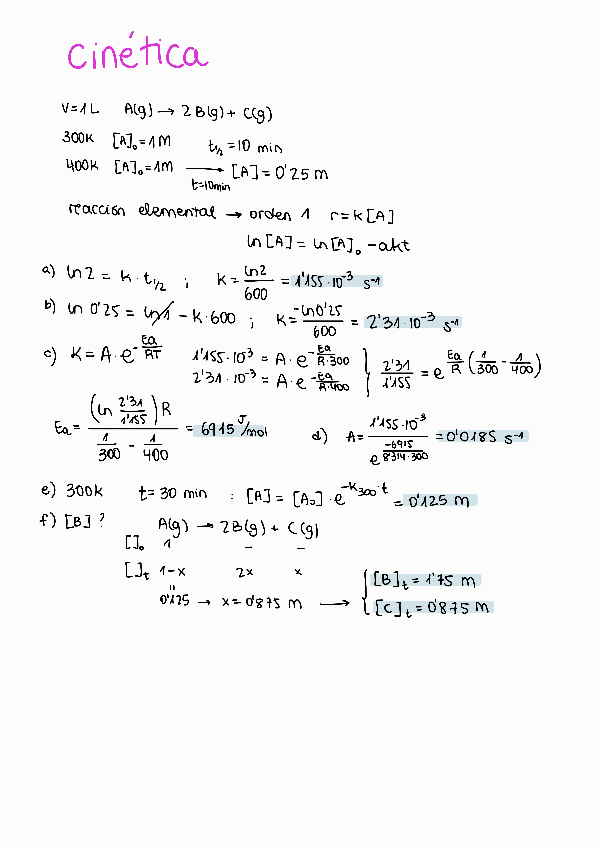 cinética
V=1L A(g) → 2B(g) + C(g)
300K [A]₀=1M t½=10 min
400K [A]₀=1M → [A]=0'25 M
t=10min
reacción elemental → orden 1 r=k[A]
ln[A] = ln[A]₀ -akt
a) ln2 = K·t½ ; K = ln2/600 = 1'155·10⁻³ s⁻¹
b) ln 0'25 = ln 1 - K·600 ; K = -ln0'25/600 = 2'31·10⁻³ s⁻¹
c) K = A·e^(-Ea/RT) 1'155·10⁻³ = A·e^(-Ea/R·300) } 2'31/1'155 = e^(Ea/R (1/300 - 1/400))
2'31·10⁻³ = A·e^(-Ea/R·400)
Ea = (ln 2'31/1'155)R / (1/300 - 1/400) = 6915 J/mol d) A = 1'155·10⁻³ / e^(-6915/8'314·300) = 0'0185 s⁻¹
e) 300K t=30 min : [A] = [A₀]·e^(-K₃₀₀·t) = 0'125 M
f) [B]? A(g) → 2B(g) + C(g)
[ ]₀ 1 - -
[ ]t 1-x 2x x
"
0'125 → x=0'875 M → { [B]t = 1'75 M
[C]t = 0'875 M